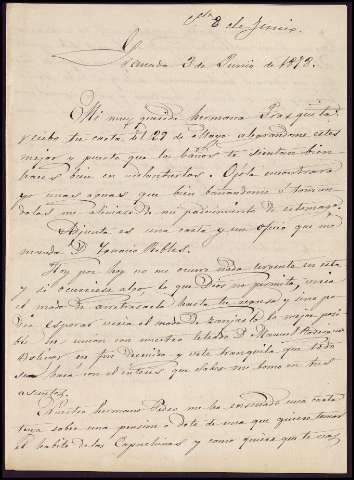 8 de Junio
Granada 3 de Junio de 1873.
Mi muy querida hermana Frasquita
recibo tu carta del 29 de Mayo alegrandome estes
mejor y puesto que los baños te sientan bien
haces bien en continuarlos. Ojalá encontrara
yo unas aguas que bien bañandome ó toman-
dolas me aliviara de mi padecimiento de estomago.
Adjunta es una carta y un oficio que me
manda D. Ignacio Robles.
Hoy por hoy no me ocurre nada urgente en esta
y si ocurriese algo, lo que Dios no permita, veria
el modo de hasta tu regreso y sino po-
dia esperar veria el modo de lo mejor posi-
ble en union con nuestro D. Manuel
Bolivar en fin descuida y vete tranquila que todo
se hará con el interes que sabes me tomo en tus
asuntos.
Nuestro hermano Pedro me ha enviado una carta
tuya sobre una pension ó dote de una que quiere tomar
el habito de las Capuchinas y como quiera que te vas